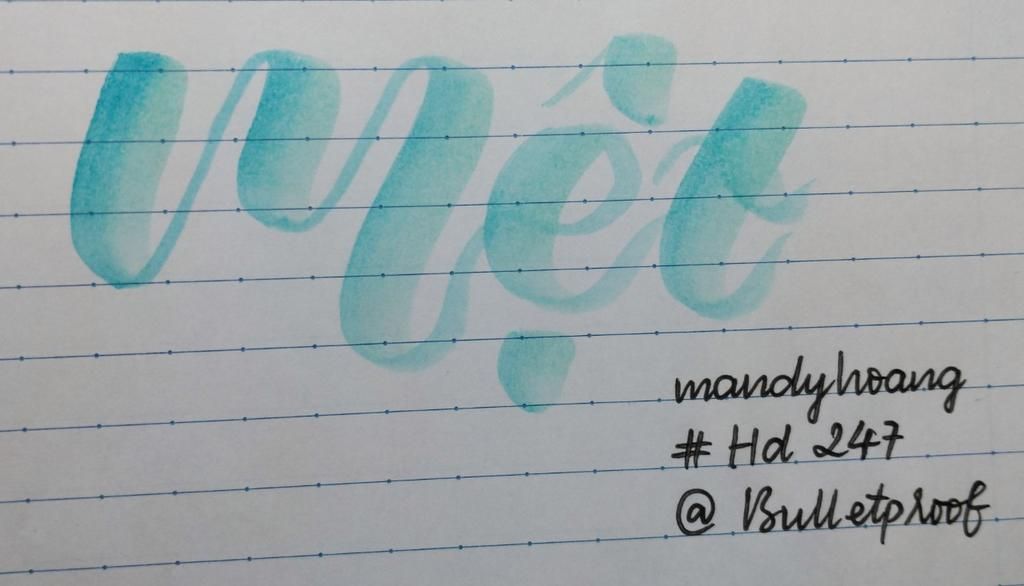 mệt
mandyhoang
# Hd 247
@ Bulletproof